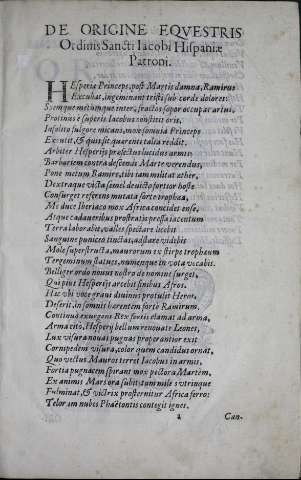 DE ORIGINE EQVESTRIS
Ordinis Sancti Iacobi Hispaniæ
Patroni.
HEsperiæ Princeps, post Martis damna, Ramirus
Excubat, ingeminant tristi sub corde dolores:
Spemque metumque inter, fractos sopor occupat artus,
Protinus è superis Iacobus constitit oris,
Insolito fulgore micans, mox somnia Princeps
Excutit, & quis sit quærenti talia reddit.
Arbiter Hesperijs præfectus lucidus armis
Barbariem contra descendi Marte verendus,
Pone metum Ramire, tibi iam militat æther,
Dextraque victa semel deuicto fortior hoste
Consurget referens mutata sorte trophæa,
Me duce Iberiaco mox Africa concidet ense,
Atque cadaueribus prostratis pressa iacentum
Terra laborabit, valles spectare licebit
Sanguine puniceo tinctas, adstare videbis
Mole superstructa, maurorum ex stirpe tropheum
Tergeminum status, numenque in vota vocabis.
Belliger ordo nouus nostro de nomine surget,
Qui pius Hesperijs arcebit finibus Afros.
Hic vbi voce graui diuinus protulit Heros,
Deserit in somnis hærentem forte Ramirum.
Continuò exurgens Rex fortis clamat ad arma,
Arma cito, Hesperij bellum renouate Leones,
Lux visura nouas pugnas properantior exit
Cornipedem visura, color quem candidus ornat,
Quo vectus Mauros terret Iacobus in armis,
Fortia pugnacem spirant mox pectora Martem,
Ex animis Mars ora subit tum mille vtrinque
Fulminat, & victrix prosternitur Africa ferro:
Telorum nubes Phaëtontis contegit ignes.
a Can-